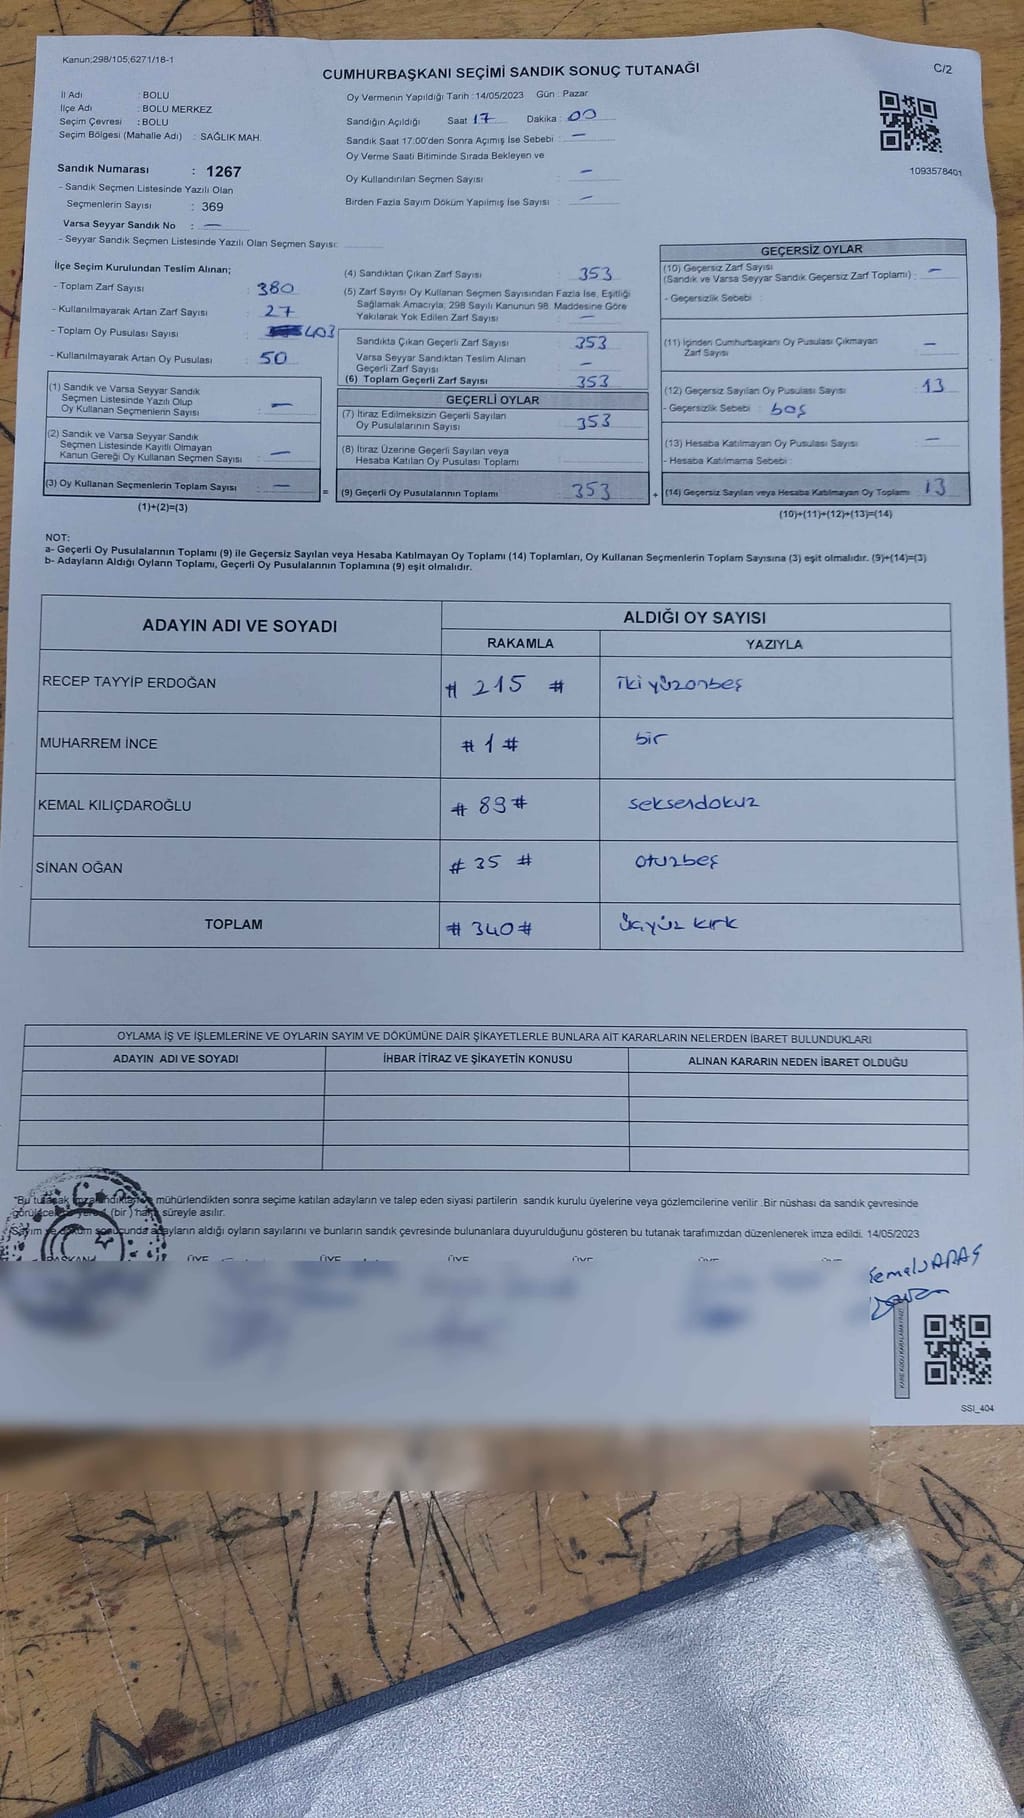 Kanun;298/105;6271/18-1
CUMHURBAŞKANI SEÇİMİ SANDIK SONUÇ TUTANAĞI
C/2
İl Adı : BOLU
İlçe Adı : BOLU MERKEZ
Seçim Çevresi : BOLU
Seçim Bölgesi (Mahalle Adı) : SAĞLIK MAH.
Oy Vermenin Yapıldığı Tarih : 14/05/2023 Gün : Pazar
Sandığın Açıldığı Saat 17 Dakika : 00
Sandık Saat 17:00'den Sonra Açımış İse Sebebi : —
Oy Verme Saati Bitiminde Sırada Bekleyen ve
Oy Kullandırılan Seçmen Sayısı : —
Birden Fazla Sayım Döküm Yapılmış İse Sayısı : —
1093578401
Sandık Numarası : 1267
- Sandık Seçmen Listesinde Yazılı Olan
Seçmenlerin Sayısı : 369
Varsa Seyyar Sandık No : —
- Seyyar Sandık Seçmen Listesinde Yazılı Olan Seçmen Sayısı:
İlçe Seçim Kurulundan Teslim Alınan;
- Toplam Zarf Sayısı : 380
- Kullanılmayarak Artan Zarf Sayısı : 27
- Toplam Oy Pusulası Sayısı : 403
- Kullanılmayarak Artan Oy Pusulası : 50
(1) Sandık ve Varsa Seyyar Sandık
Seçmen Listesinde Yazılı Olup
Oy Kullanan Seçmenlerin Sayısı : —
(2) Sandık ve Varsa Seyyar Sandık
Seçmen Listesinde Kayıtlı Olmayan
Kanun Gereği Oy Kullanan Seçmen Sayısı : —
(3) Oy Kullanan Seçmenlerin Toplam Sayısı : —
(1)+(2)=(3)
(4) Sandıktan Çıkan Zarf Sayısı : 353
(5) Zarf Sayısı Oy Kullanan Seçmen Sayısından Fazla İse, Eşitliği
Sağlamak Amacıyla; 298 Sayılı Kanunun 98. Maddesine Göre
Yakılarak Yok Edilen Zarf Sayısı : —
Sandıkta Çıkan Geçerli Zarf Sayısı : 353
Varsa Seyyar Sandıktan Teslim Alınan
Geçerli Zarf Sayısı : —
(6) Toplam Geçerli Zarf Sayısı : 353
GEÇERLİ OYLAR
(7) İtiraz Edilmeksizin Geçerli Sayılan
Oy Pusulalarının Sayısı : 353
(8) İtiraz Üzerine Geçerli Sayılan veya
Hesaba Katılan Oy Pusulası Toplamı :
= (9) Geçerli Oy Pusulalarının Toplamı : 353 +
GEÇERSİZ OYLAR
(10) Geçersiz Zarf Sayısı
(Sandık ve Varsa Seyyar Sandık Geçersiz Zarf Toplamı) : —
- Geçersizlik Sebebi :
(11) İçinden Cumhurbaşkanı Oy Pusulası Çıkmayan
Zarf Sayısı : —
(12) Geçersiz Sayılan Oy Pusulası Sayısı : 13
- Geçersizlik Sebebi : boş
(13) Hesaba Katılmayan Oy Pusulası Sayısı : —
- Hesaba Katılmama Sebebi :
(14) Geçersiz Sayılan veya Hesaba Katılmayan Oy Toplamı : 13
(10)+(11)+(12)+(13)=(14)
NOT:
a- Geçerli Oy Pusulalarının Toplamı (9) ile Geçersiz Sayılan veya Hesaba Katılmayan Oy Toplamı (14) Toplamları, Oy Kullanan Seçmenlerin Toplam Sayısına (3) eşit olmalıdır. (9)+(14)=(3)
b- Adayların Aldığı Oyların Toplamı, Geçerli Oy Pusulalarının Toplamına (9) eşit olmalıdır.
ADAYIN ADI VE SOYADI ALDIĞI OY SAYISI
RAKAMLA YAZIYLA
RECEP TAYYİP ERDOĞAN # 215 # İki yüzonbeş
MUHARREM İNCE # 1 # bir
KEMAL KILIÇDAROĞLU # 89 # seksendokuz
SİNAN OĞAN # 35 # otuzbeş
TOPLAM # 340 # Üçyüz kırk
OYLAMA İŞ VE İŞLEMLERİNE VE OYLARIN SAYIM VE DÖKÜMÜNE DAİR ŞİKAYETLERLE BUNLARA AİT KARARLARIN NELERDEN İBARET BULUNDUKLARI
ADAYIN ADI VE SOYADI İHBAR İTİRAZ VE ŞİKAYETİN KONUSU ALINAN KARARIN NEDEN İBARET OLDUĞU
*Bu tutanak imzalandıktan ve mühürlendikten sonra seçime katılan adayların ve talep eden siyasi partilerin sandık kurulu üyelerine veya gözlemcilerine verilir .Bir nüshası da sandık çevresinde
(bir) hafta süreyle asılır.
Sayım ve döküm sonucunda adayların aldığı oyların sayılarını ve bunların sandık çevresinde bulunanlara duyurulduğunu gösteren bu tutanak tarafımızdan düzenlenerek imza edildi. 14/05/2023
BAŞKAN ÜYE ÜYE ÜYE ÜYE ÜYE ÜYE
SSI_404